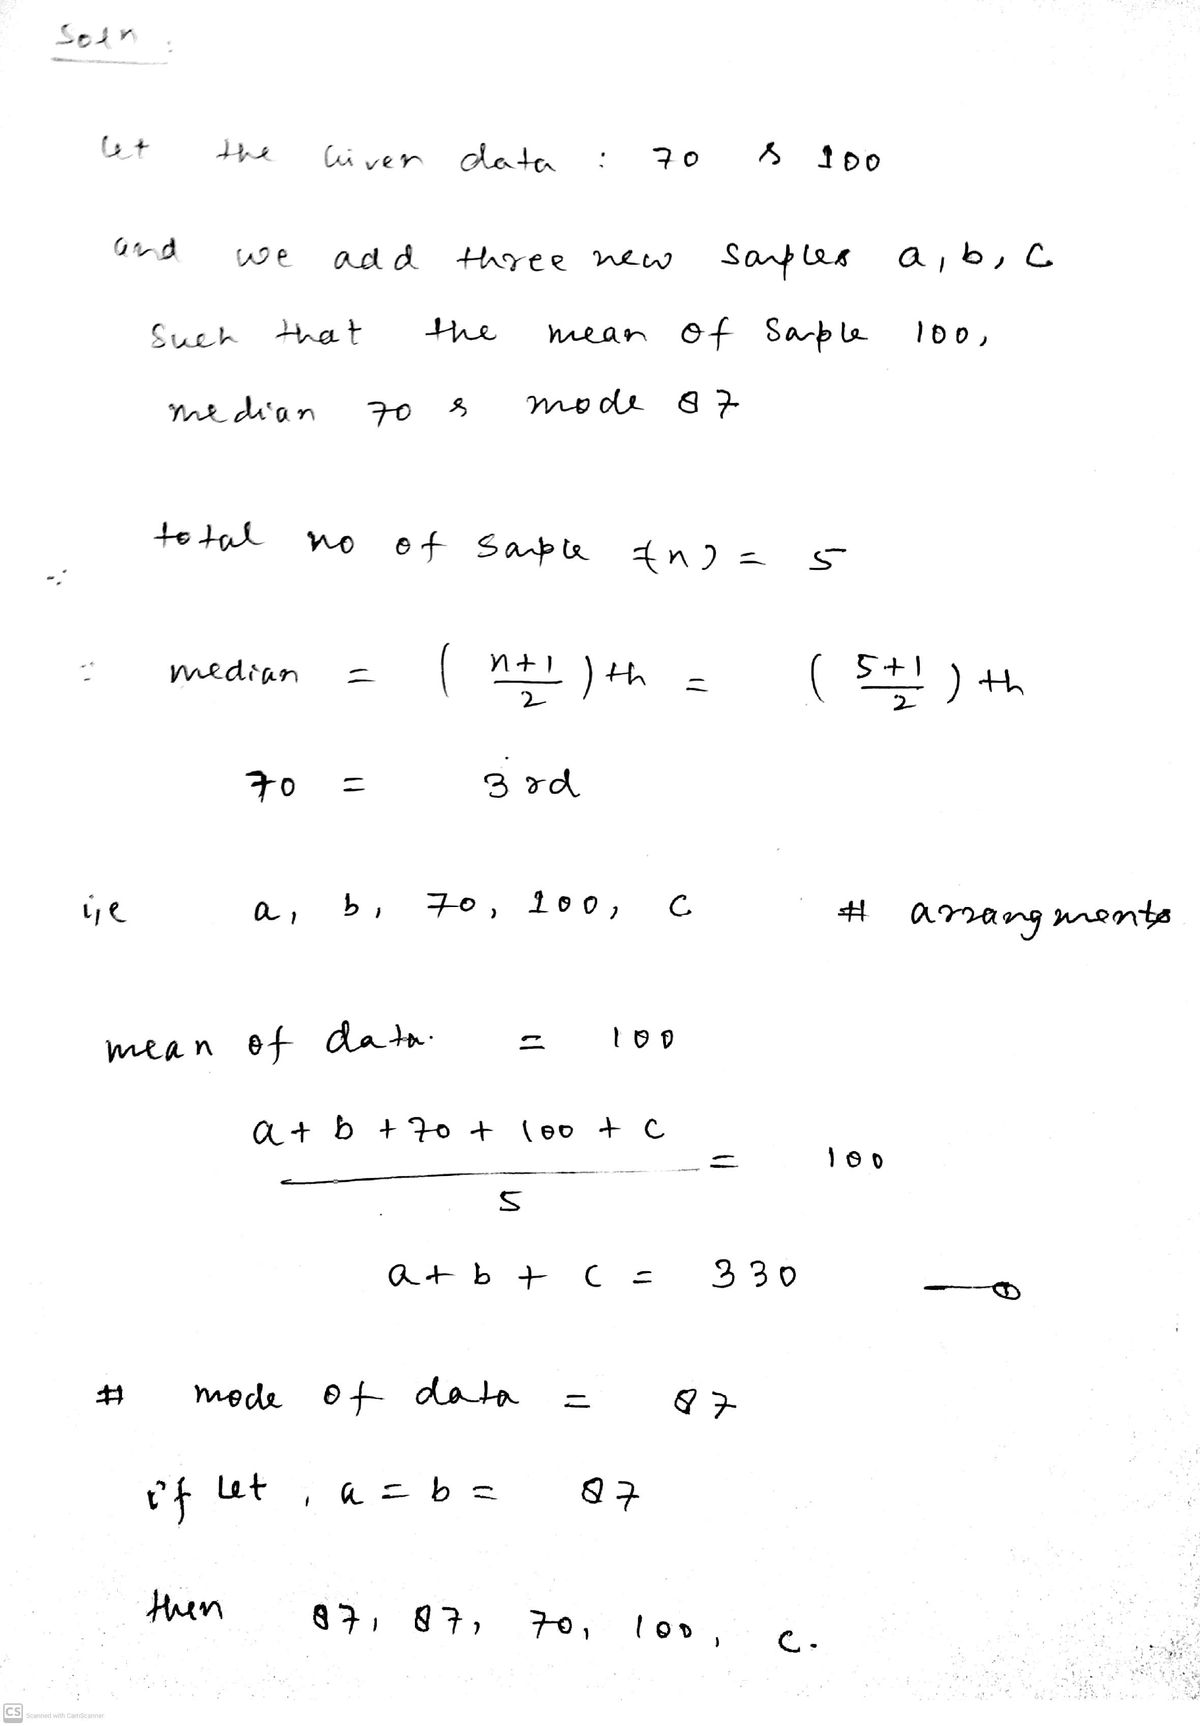 Soln :
let the Given data : 70 & 100
and we add three new samples a, b, c
Such that the mean of Sample 100,
median 70 & mode 87
total no of Sample (n) = 5
∵ median = ( n+1 / 2 ) th = ( 5+1 / 2 ) th
70 = 3rd
i,e a, b, 70, 100, c # arrangments
mean of data. = 100
a + b + 70 + 100 + c / 5 = 100
a + b + c = 330 —①
# mode of data = 87
if let , a = b = 87
then 87, 87, 70, 100, c.
CS Scanned with CamScanner